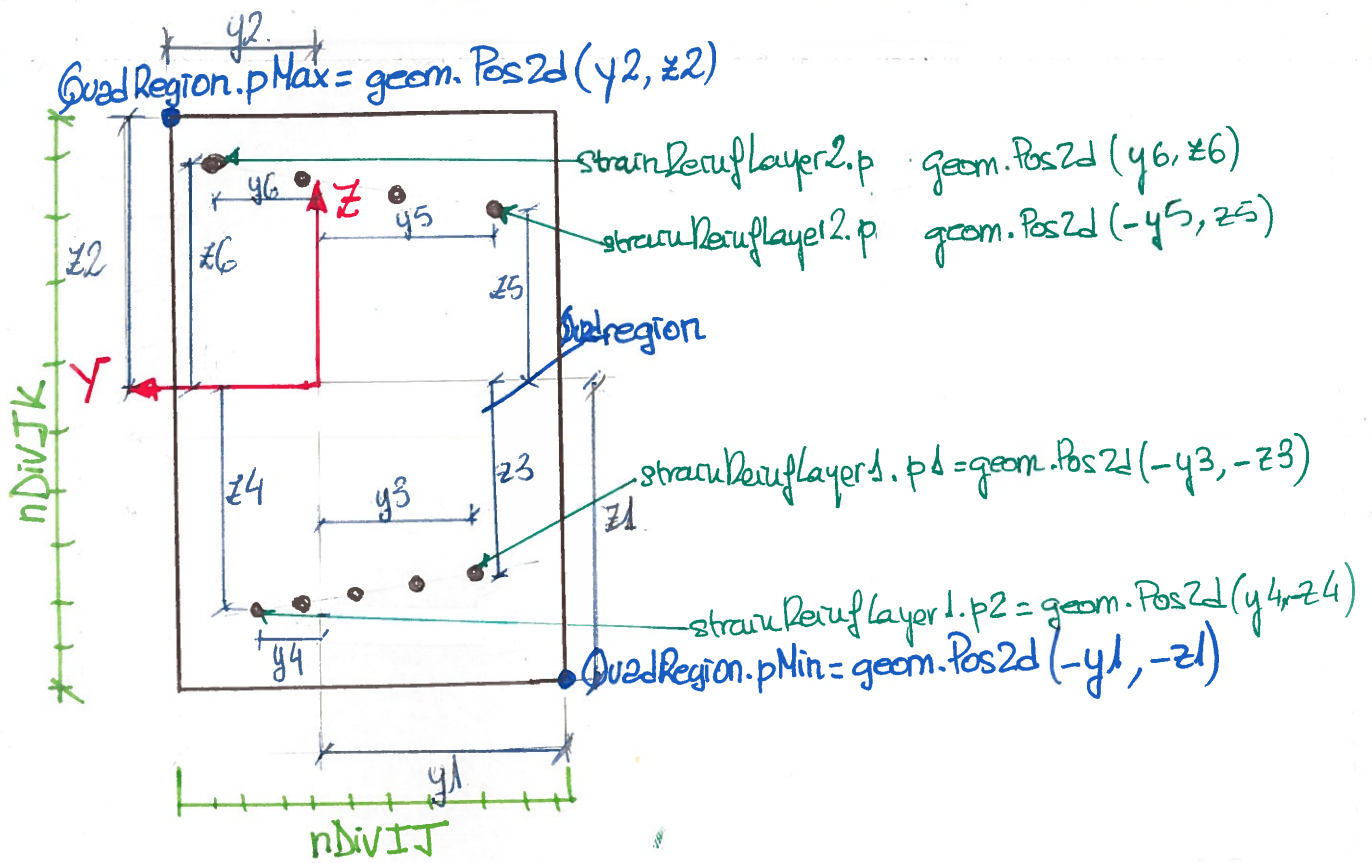 y2
QuadRegion.pMax = geom.Pos2d(y2, z2)
strainReinfLayer2.p geom.Pos2d(y6, z6)
y6
Z
y5
strainReinfLayer2.p geom.Pos2d(-y5, z5)
z2
z6
z5
Quadregion
Y
nDivJK
z4
y3
z3
strainReinfLayer1.p1 = geom.Pos2d(-y3, -z3)
z1
strainReinfLayer1.p2 = geom.Pos2d(y4,-z4)
y4
QuadRegion.pMin = geom.Pos2d(-y1, -z1)
y1
nDivIJ